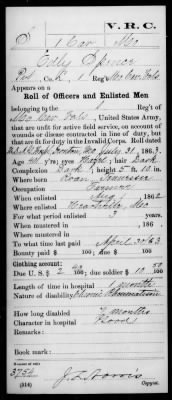 V. R. C.
1 Cav. Mo.
Edly Spencer
Pvt., Co. K, 1 Reg't Mo. Cav. Vols.
Appears on a
Roll of Officers and Enlisted Men
belonging to the 1 Reg't of
Mo Cav Vols, United States Army,
that are unfit for active field service, on account of
wounds or disease contracted in the army, but that
are fit for duty in the Invalid Corps. Roll dated
Mo July 31, 1863.
Age yrs; eyes Hazel, hair Dark
Complexion Dark, height 5 ft. 10 in.
Where born Roan
Occupation Farmer
When enlisted Aug , 1862
Where enlisted Mo
For what period enlisted 3 years.
When mustered in , 186 .
Where mustered in
To what time last paid April 30/63
Bounty paid $ 100; due $ 100
Clothing account:
Due U. S. $ ; due soldier $ 10
Length of time in hospital 1 month
Nature of disability Chronic Rheumatism
How long disabled 7 months
Character in hospital Good
Remarks:
Book mark:
(314)
Copyist.